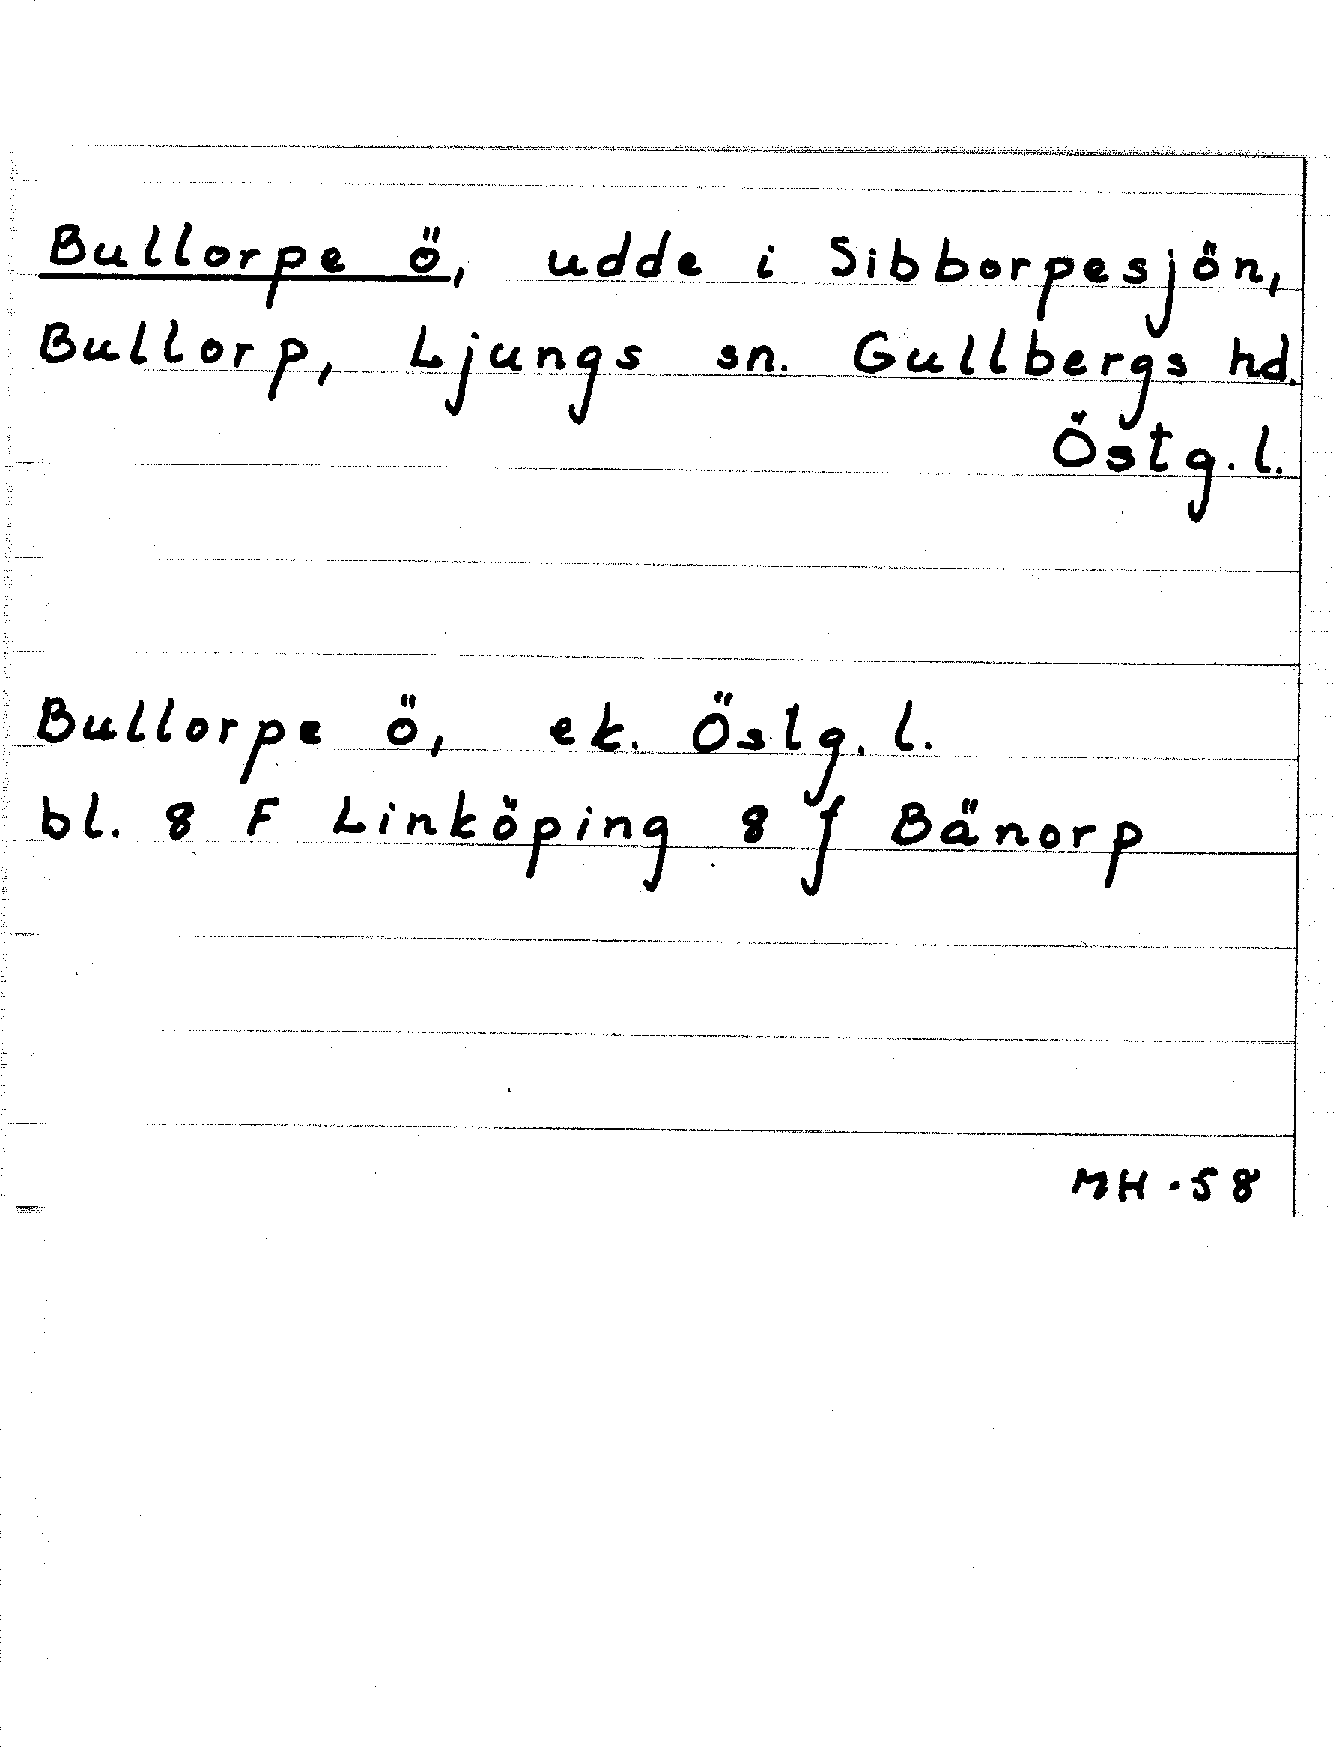 Bullorpe ö, udde i Sibborpesjön,
Bullorp, Ljungs sn. Gullbergs hd.
Östg. l.
Bullorpe ö, ek. Östg. l.
bl. 8 F Linköping 8 f Bänorp
MH -58